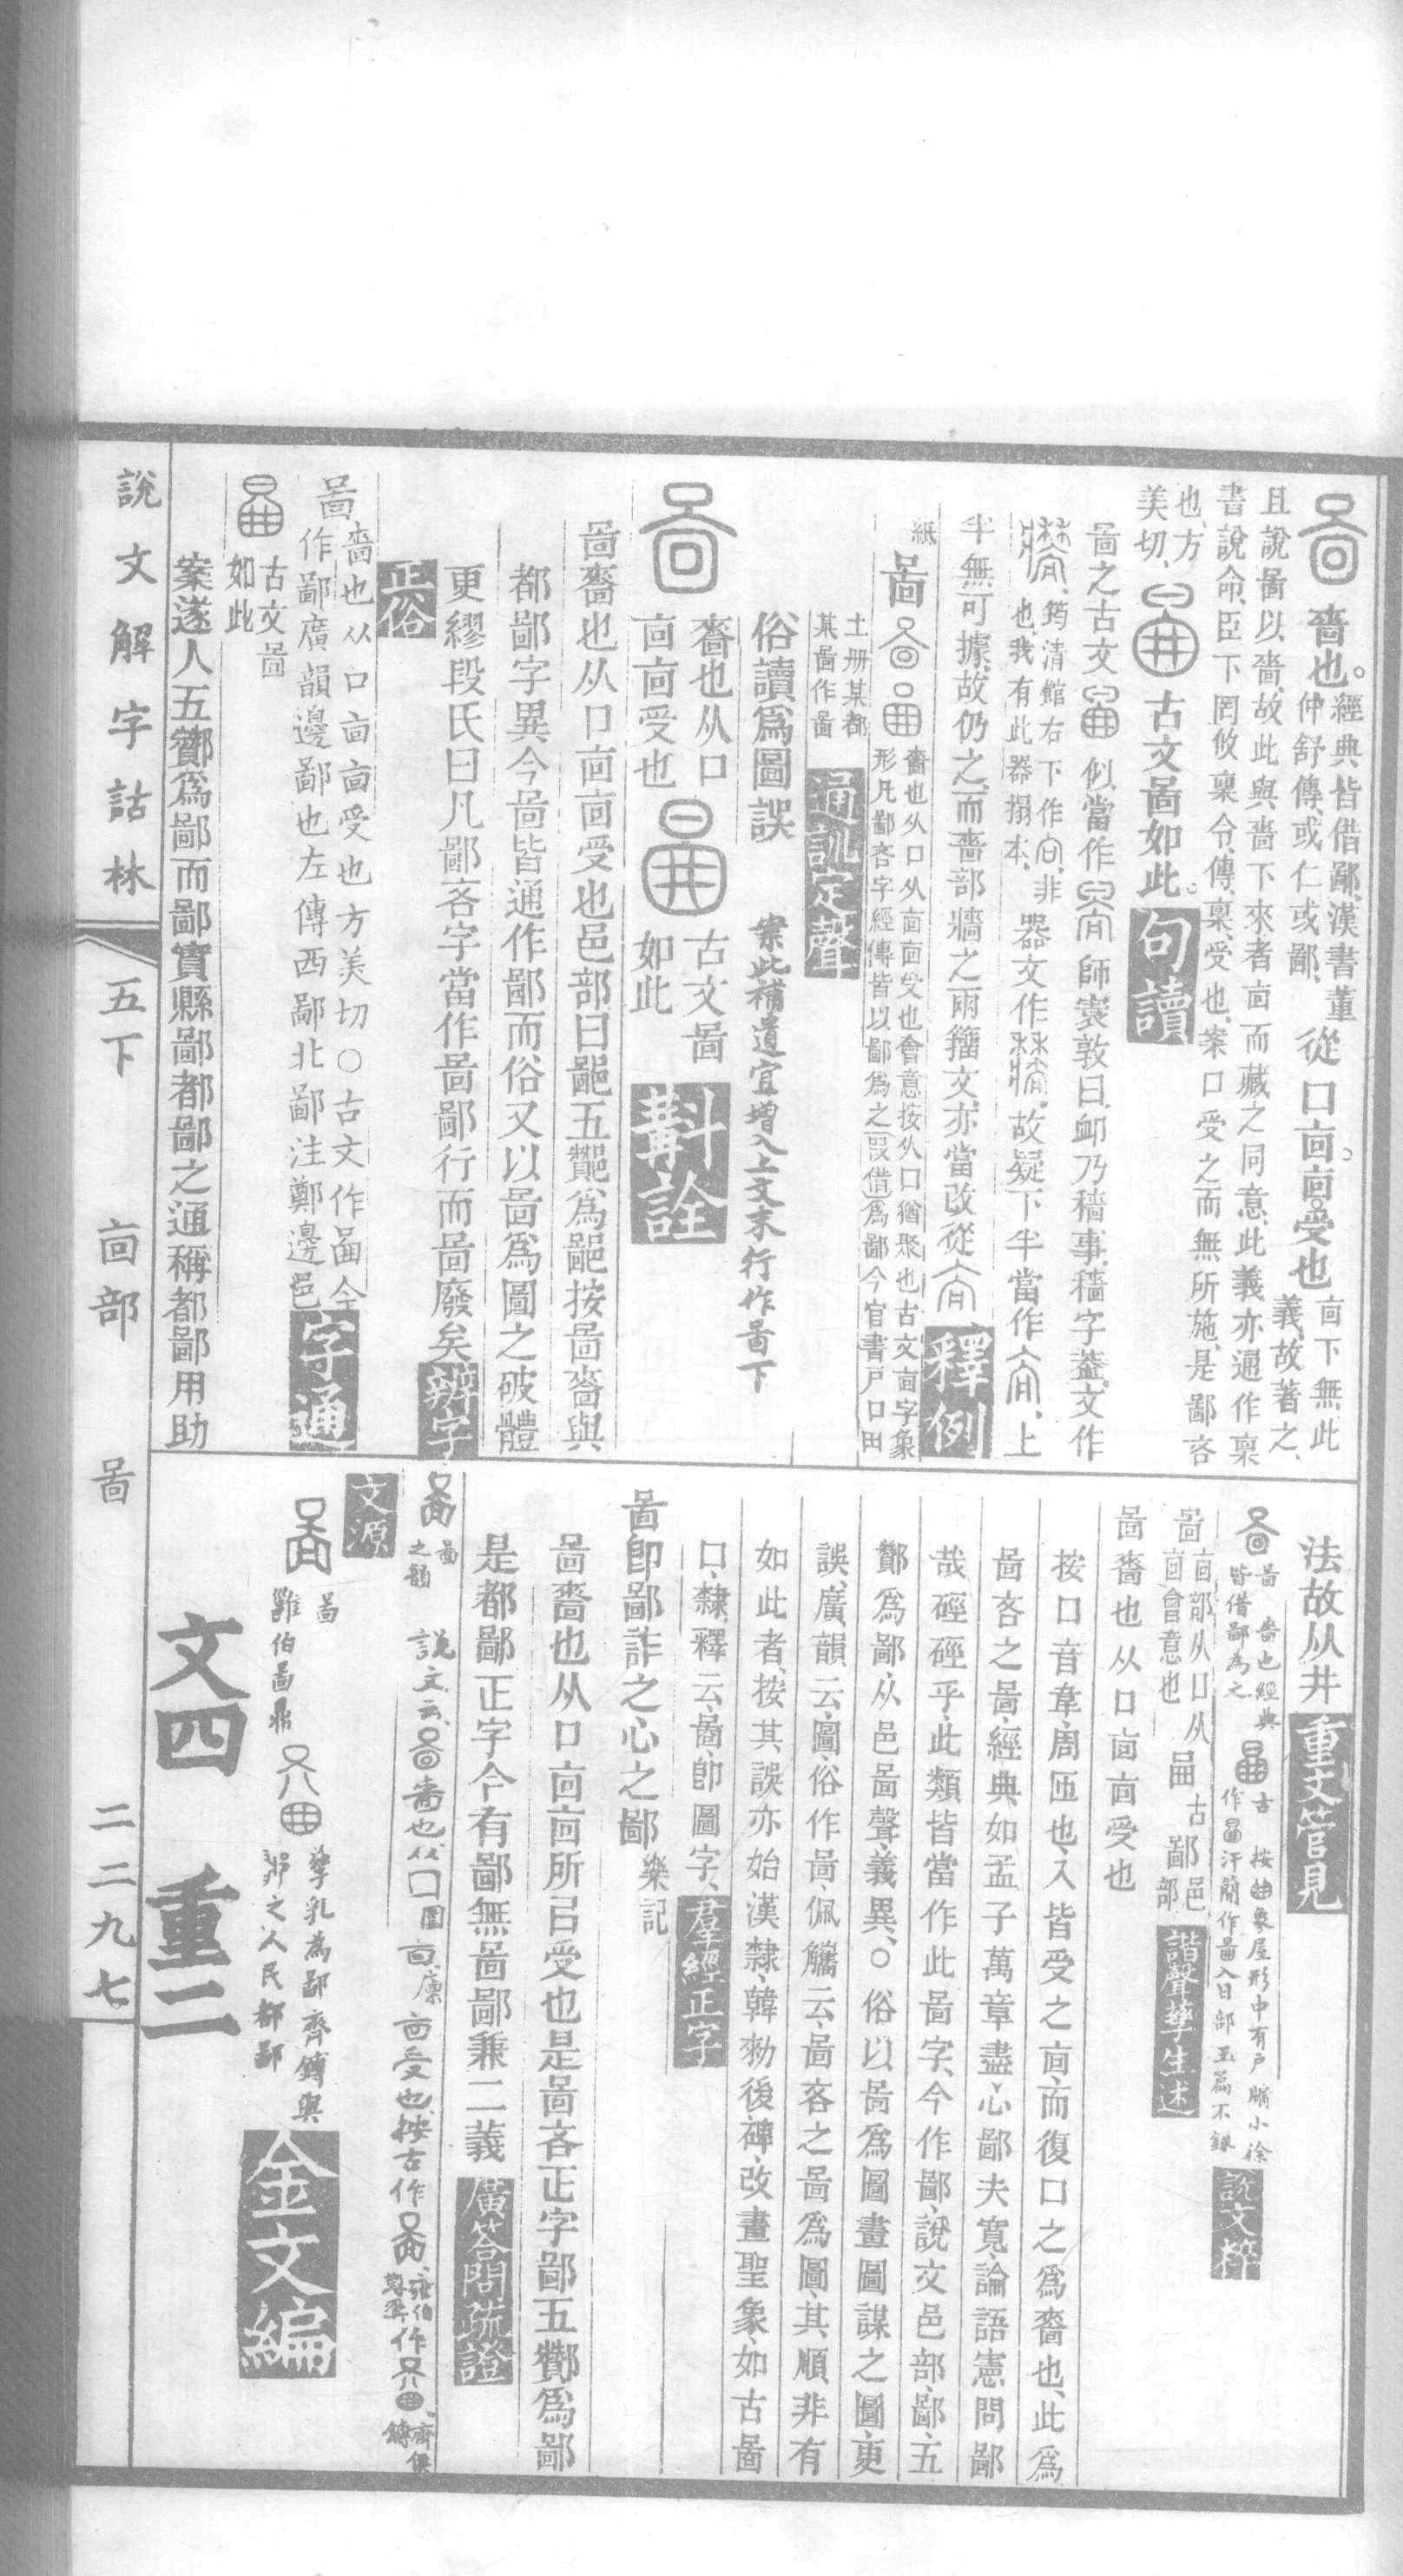 嗇也。經典皆借鄙、漢書董仲舒傳、或仁或鄙、從口㐭㐭受也㐭下無此義、故著之、
且說啚以嗇、故此與嗇下來者㐭而藏之同意、此義亦通作稟
書說命、臣下罔攸稟令、傳、稟、受也、案口受之而無所施、是鄙吝
也、方美切、古文啚如此。句讀
啚之古文 似當作 師㝨敦曰、卹乃穡事、穡字蓋文作
筠清館右下作 非也我有此器搨本、器文作 故疑下半當作 上
半無可據、故仍之、而嗇部牆之兩籒文、亦當改從 釋例
紙
啚 嗇也从口从㐭㐭受也會意按从口猶聚也古文㐭字象形凡鄙吝字經傳皆以鄙爲之叚借爲鄙今官書戶口田
土册某都某啚作啚 通訓定聲
俗讀爲圖誤 案此補遺宜增入上文末行作啚下
嗇也从口㐭㐭受也 古文啚如此 斠詮
啚嗇也从口㐭㐭受也邑部曰鄙五酇爲鄙按啚嗇與
都鄙字異今啚皆通作鄙而俗又以啚爲圖之破體
更繆段氏曰凡鄙吝字當作啚鄙行而啚廢矣辨字
正俗
啚嗇也从口㐭㐭受也方美切○古文作 今作鄙廣韻邊鄙也左傳西鄙北鄙注鄭邊邑字通
古文啚如此
案遂人五酇爲鄙而鄙實縣鄙都鄙之通稱都鄙用助
說文解字詁林 五下 㐭部 啚 二二九七
法故从井 重文管見
啚 嗇也經典皆借鄙為之 古 按 象屋形中有戶牖小徐作 汗簡作 入日部玉篇不錄 說文粹
啚 㐭部从口从㐭會意也 古 鄙邑部 諧聲孳生述
啚嗇也从口㐭㐭受也
按口音韋、周匝也、入皆受之㐭、而復口之爲嗇也、此爲
啚吝之啚、經典、如孟子萬章盡心鄙夫寬、論語憲問鄙
哉硜硜乎、此類皆當作此啚字、今作鄙、說文邑部、鄙、五
酇爲鄙、从邑啚聲、義異、○俗以啚爲圖畫圖謀之圖、更
誤、廣韻云、圖、俗作啚、佩觿云、啚吝之啚爲圖、其順非有
如此者、按其誤亦始漢隸、韓勑後碑、改畫聖象、如古啚
口、隸釋云、啚、卽圖字、羣經正字
啚卽鄙詐之心之鄙樂記
啚嗇也从口㐭㐭所㠯受也是啚吝正字鄙五酇爲鄙
是都鄙正字今有鄙無啚鄙兼二義廣答問疏證
啚之韻 說文云、 嗇也从口囗㐭廩㐭受也、按古作 雝伯 作 齊侯鎛
文源
啚 雝伯啚鼎 孳乳為鄙齊鎛與 之人民都鄙 金文編
文四 重二